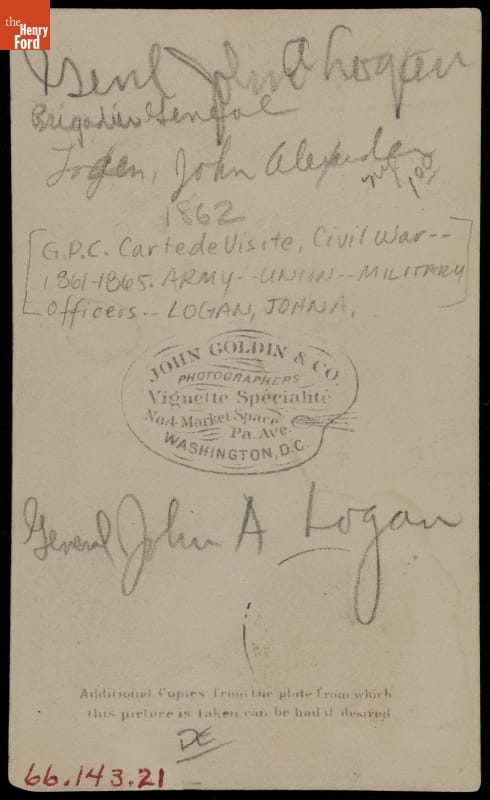 the
Henry
Ford
Genl John A Logan
Brigadier General
Logan, John Alexander
1862
[G.P.C. Carte de Visite, Civil War--
1861-1865. ARMY--UNION--MILITARY
Officers-- LOGAN, JOHN A.]
JOHN GOLDIN & CO.
PHOTOGRAPHERS
Vignette Spécialité
No. 4 Market Space
Pa. Ave.
WASHINGTON, D.C.
General John A Logan
Additional Copies from the plate from which
this picture is taken can be had if desired
DE
66.143.21